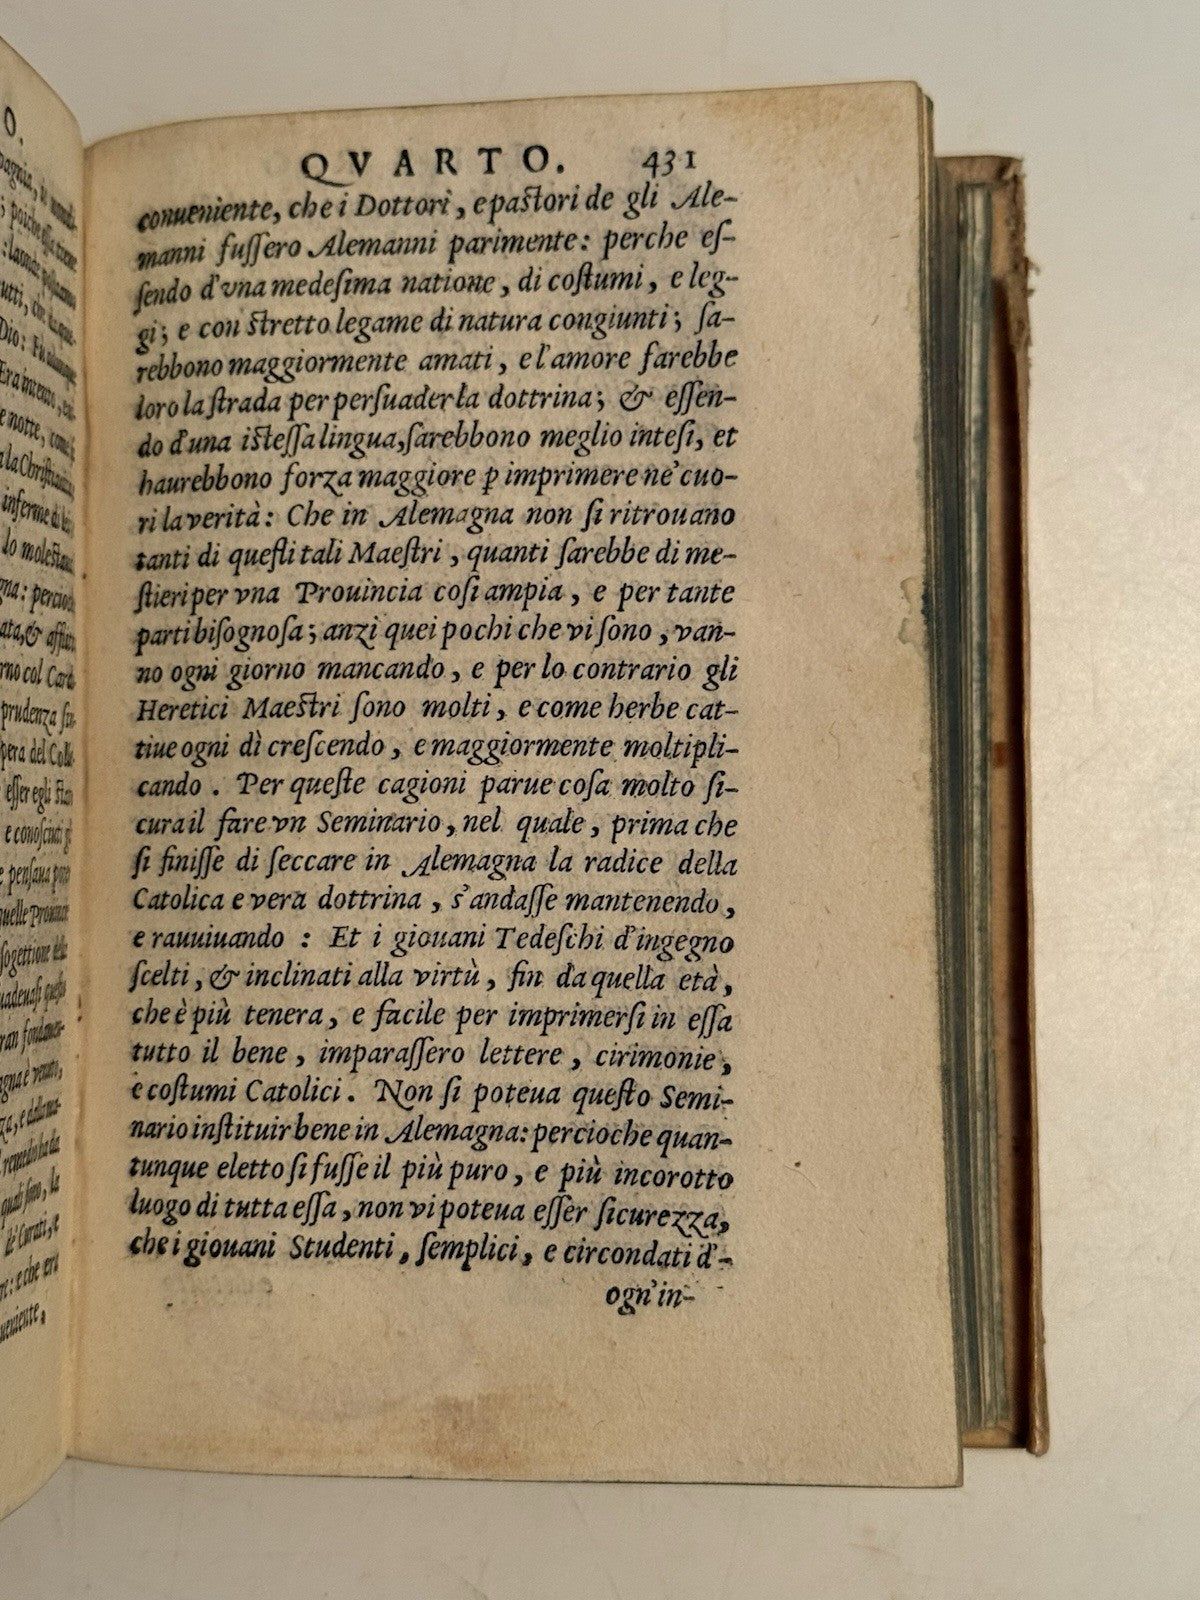 QVARTO. 431
conueniente, che i Dottori, e pastori de gli Ale-
manni fuſſero Alemanni parimente: perche eſ-
ſendo d'vna medeſima natione, di coſtumi, e leg-
gi; e con stretto legame di natura congiunti; ſa-
rebbono maggiormente amati, e l'amore farebbe
loro la ſtrada per perſuader la dottrina; & eſſen-
do d'una isteſſa lingua, ſarebbono meglio inteſi, et
haurebbono forza maggiore ꝑ imprimere ne' cuo-
ri la verità: Che in Alemagna non ſi ritrouano
tanti di queſti tali Maeſtri, quanti ſarebbe di me-
ſtieri per vna Prouincia coſi ampia, e per tante
parti biſognoſa; anzi quei pochi che vi ſono, van-
no ogni giorno mancando, e per lo contrario gli
Heretici Maestri ſono molti, e come herbe cat-
tiue ogni dì creſcendo, e maggiormente moltipli-
cando. Per queſte cagioni parue coſa molto ſi-
cura il fare vn Seminario, nel quale, prima che
ſi finiſſe di ſeccare in Alemagna la radice della
Catolica e vera dottrina, s'andaſſe mantenendo,
e rauuiuando: Et i giouani Tedeſchi d'ingegno
ſcelti, & inclinati alla virtù, fin da quella età,
che è più tenera, e facile per imprimerſi in eſſa
tutto il bene, imparaſſero lettere, cirimonie,
e coſtumi Catolici. Non ſi poteua queſto Semi-
nario inſtituir bene in Alemagna: percioche quan-
tunque eletto ſi fuſſe il più puro, e più incorotto
luogo di tutta eſſa, non vi poteua eſſer ſicurezza,
che i giouani Studenti, ſemplici, e circondati d'-
ogn'in-